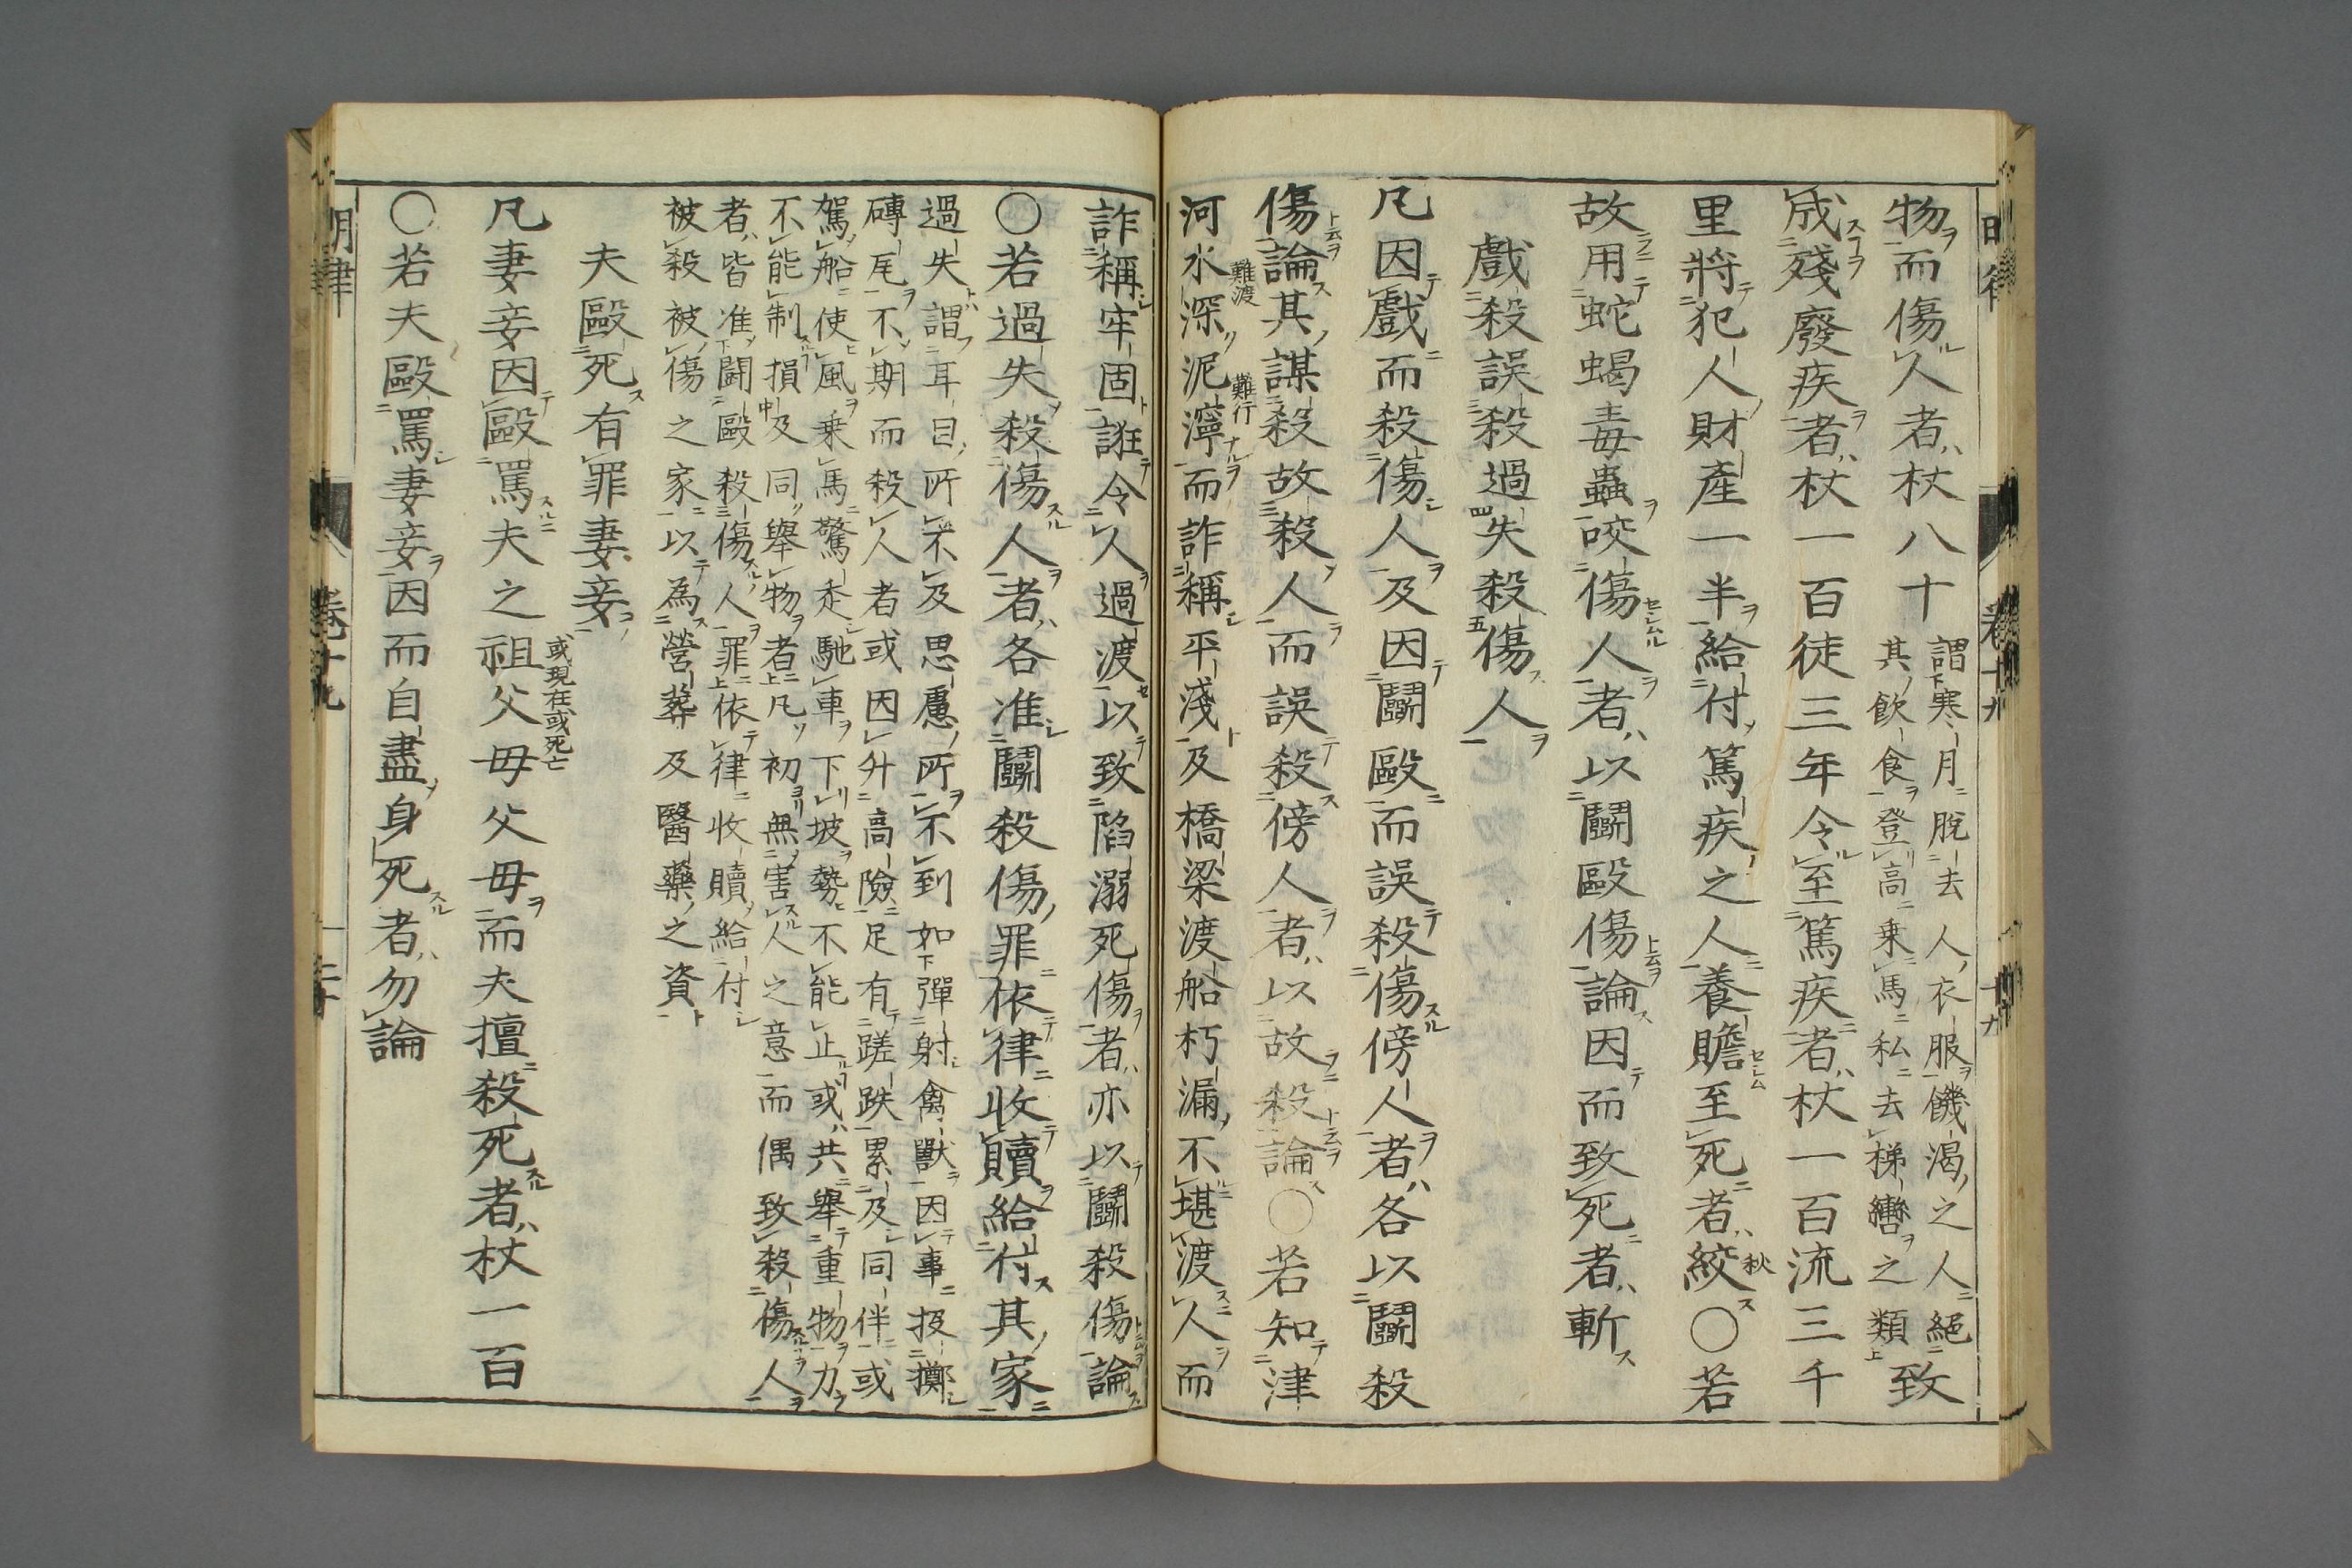 物而傷人者杖八十謂寒月脫去人衣服饑渴之人絕
其飲食登高乘馬私去梯轡之類致
成殘廢疾者杖一百徒三年令至篤疾者杖一百流三千
里將犯人財產一半給付篤疾之人養贍至死者絞秋〇若
故用蛇蝎毒蟲咬傷人者以鬬毆傷論因而致死者斬
戲殺誤殺過失殺傷人
凡因戲而殺傷人及因鬬毆而誤殺傷傍人者各以鬬殺
傷論其謀殺故殺人而誤殺傍人者以故殺論〇若知津
難渡 難行
河水深泥濘而詐稱平淺及橋梁渡船朽漏不堪渡人而
詐稱牢固誑令人過渡以致陷溺死傷者亦以鬬殺傷論
〇若過失殺傷人者各准鬬殺傷罪依律收贖給付其家
過失謂耳目所不及思慮所不到如彈射禽獸因事投擲
磚瓦不期而殺人者或因升高險足有蹉跌累及同伴或
駕船使風乘馬驚走馳車下坡勢不能止或共舉重物力
不能制損及同舉物者凡初無害人之意而偶致殺傷人
者皆准鬬毆殺傷人罪依律收贖給付
被殺被傷之家以為營葬及醫藥之資
夫毆死有罪妻妾
或現在或死亡
凡妻妾因毆罵夫之祖父母父母而夫擅殺死者杖一百
〇若夫毆罵妻妾因而自盡身死者勿論
明律 卷十九